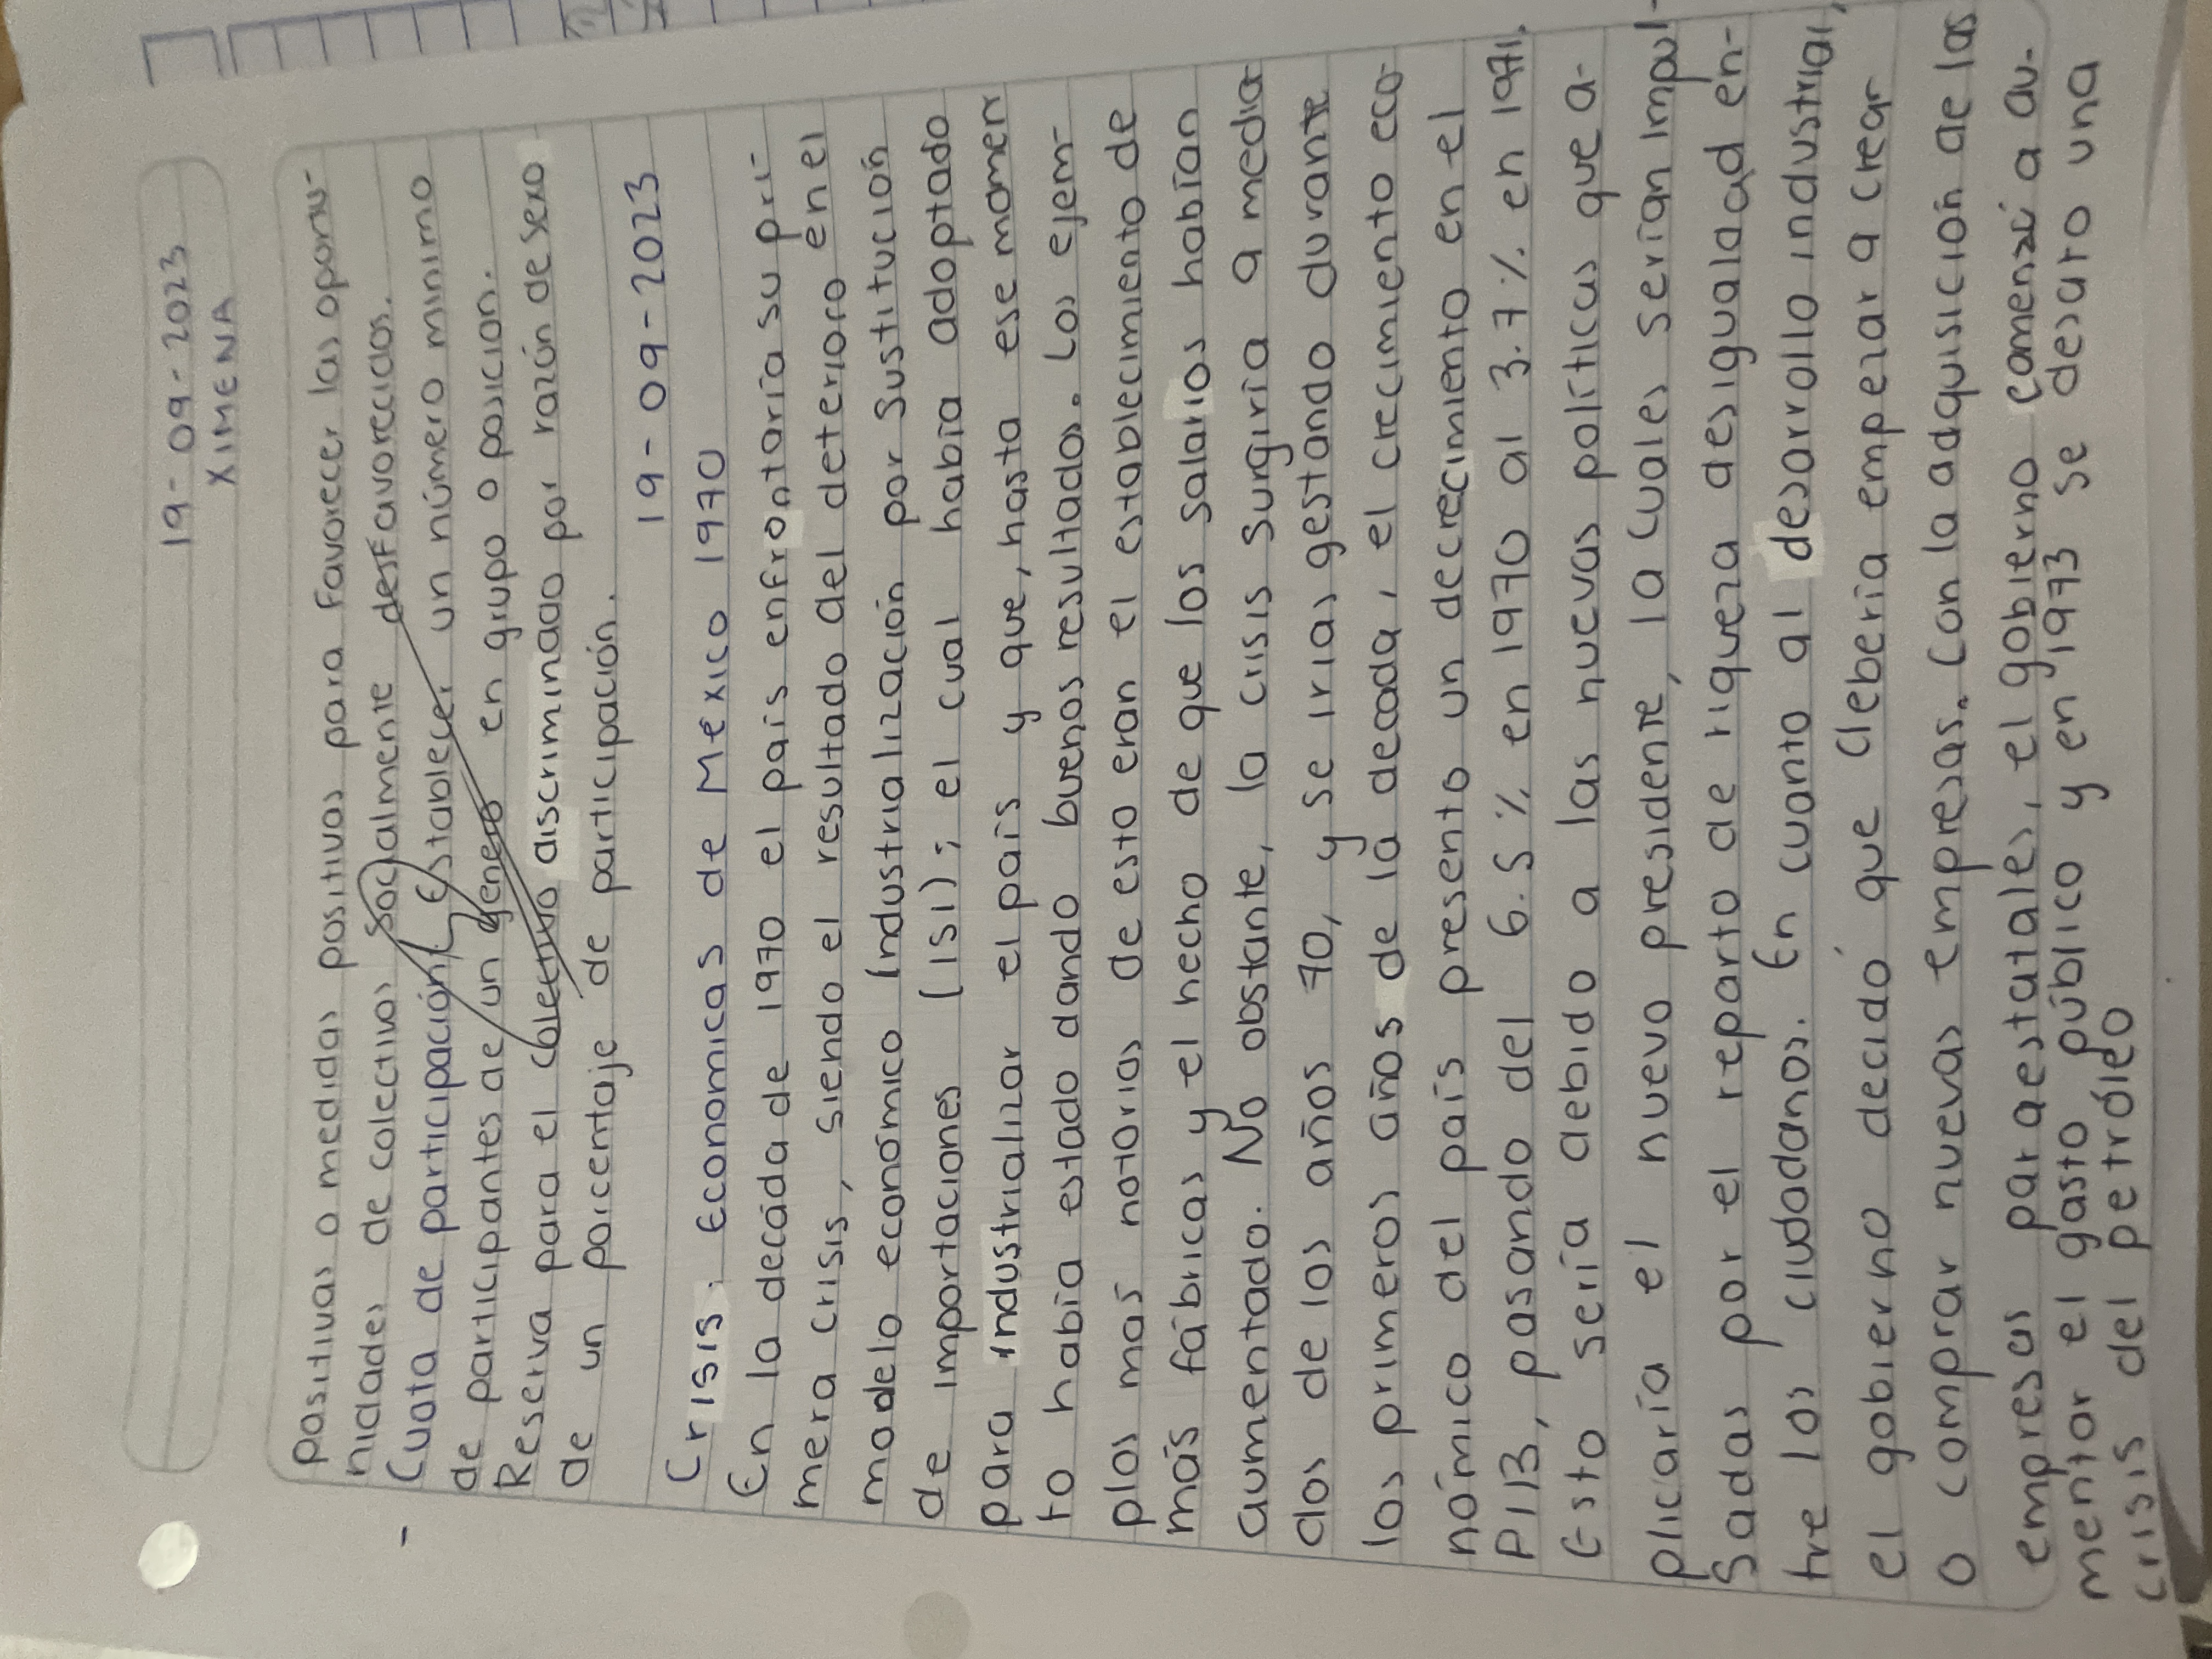 19-09-2023
XIMENA
positivas o medidas positivas para favorecer las oportu-
nidades de colectivos socialmente desfavorecidos.
- Cuota de participación Establecer un número minimo
de participantes de un genero en grupo o posicion.
Reserva para el colectivo discriminado por razón de sexo
de un porcentaje de participación.
19-09-2023
Crisis: Economicas de Mexico 1970
En la decáda de 1970 el país enfrontaría su pri-
mera crisis, siendo el resultado del deterioro en el
modelo económico Industrialización por Sustitución
de importaciones (ISI); el cual había adoptado
para industrializar el país y que, hasta ese momen
to había estado dando buenos resultados. Los ejem-
plos mas notorios de esto eran el establecimiento de
más fábricas y el hecho de que los salarios habían
aumentado. No obstante, la crisis surgiría a media
dos de los años 70, y se irias gestando durante
los primeros años de la decada, el crecimiento eco-
nómico del país presento un decrecimiento en el
PIB, pasando del 6.5% en 1970 al 3.7% en 1971.
Esto sería debido a las nuevas políticas que a-
plicaría el nuevo presidente, la cuales serían impul-
Sadas por el reparto de riqueza desigualdad en-
tre los ciudadanos. En cuanto al desarrollo industrial,
el gobierno decidó que deberia empezar a crear
o comprar nuevas empresas. Con la adquisición de las
empresas paraestatales, el gobierno comenzó a au-
mentar el gasto público y en 1973 se desato una
crisis del petróleo